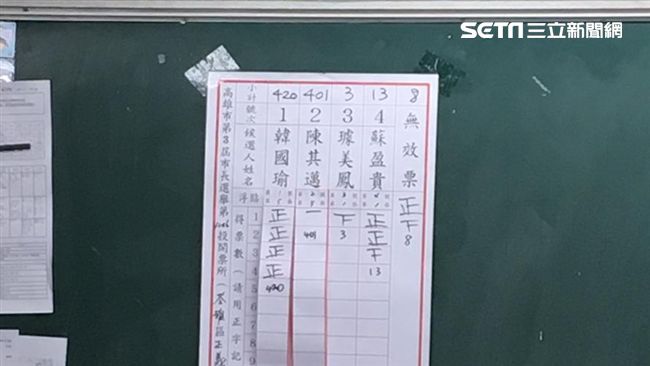 SETN 三立新聞網
小計 420 401 3 13 8
號次 1 2 3 4 無效票
候選人姓名 韓國瑜 陳其邁 璩美鳳 蘇盈貴
高雄市第3屆市長選舉第 投開票所(苓雅區正義
得票數(請用正字記
1 正 一 下 正 正
2 正 401 3 正 下
3 正 下 8
4 正 13
5 420
6
7
8
9